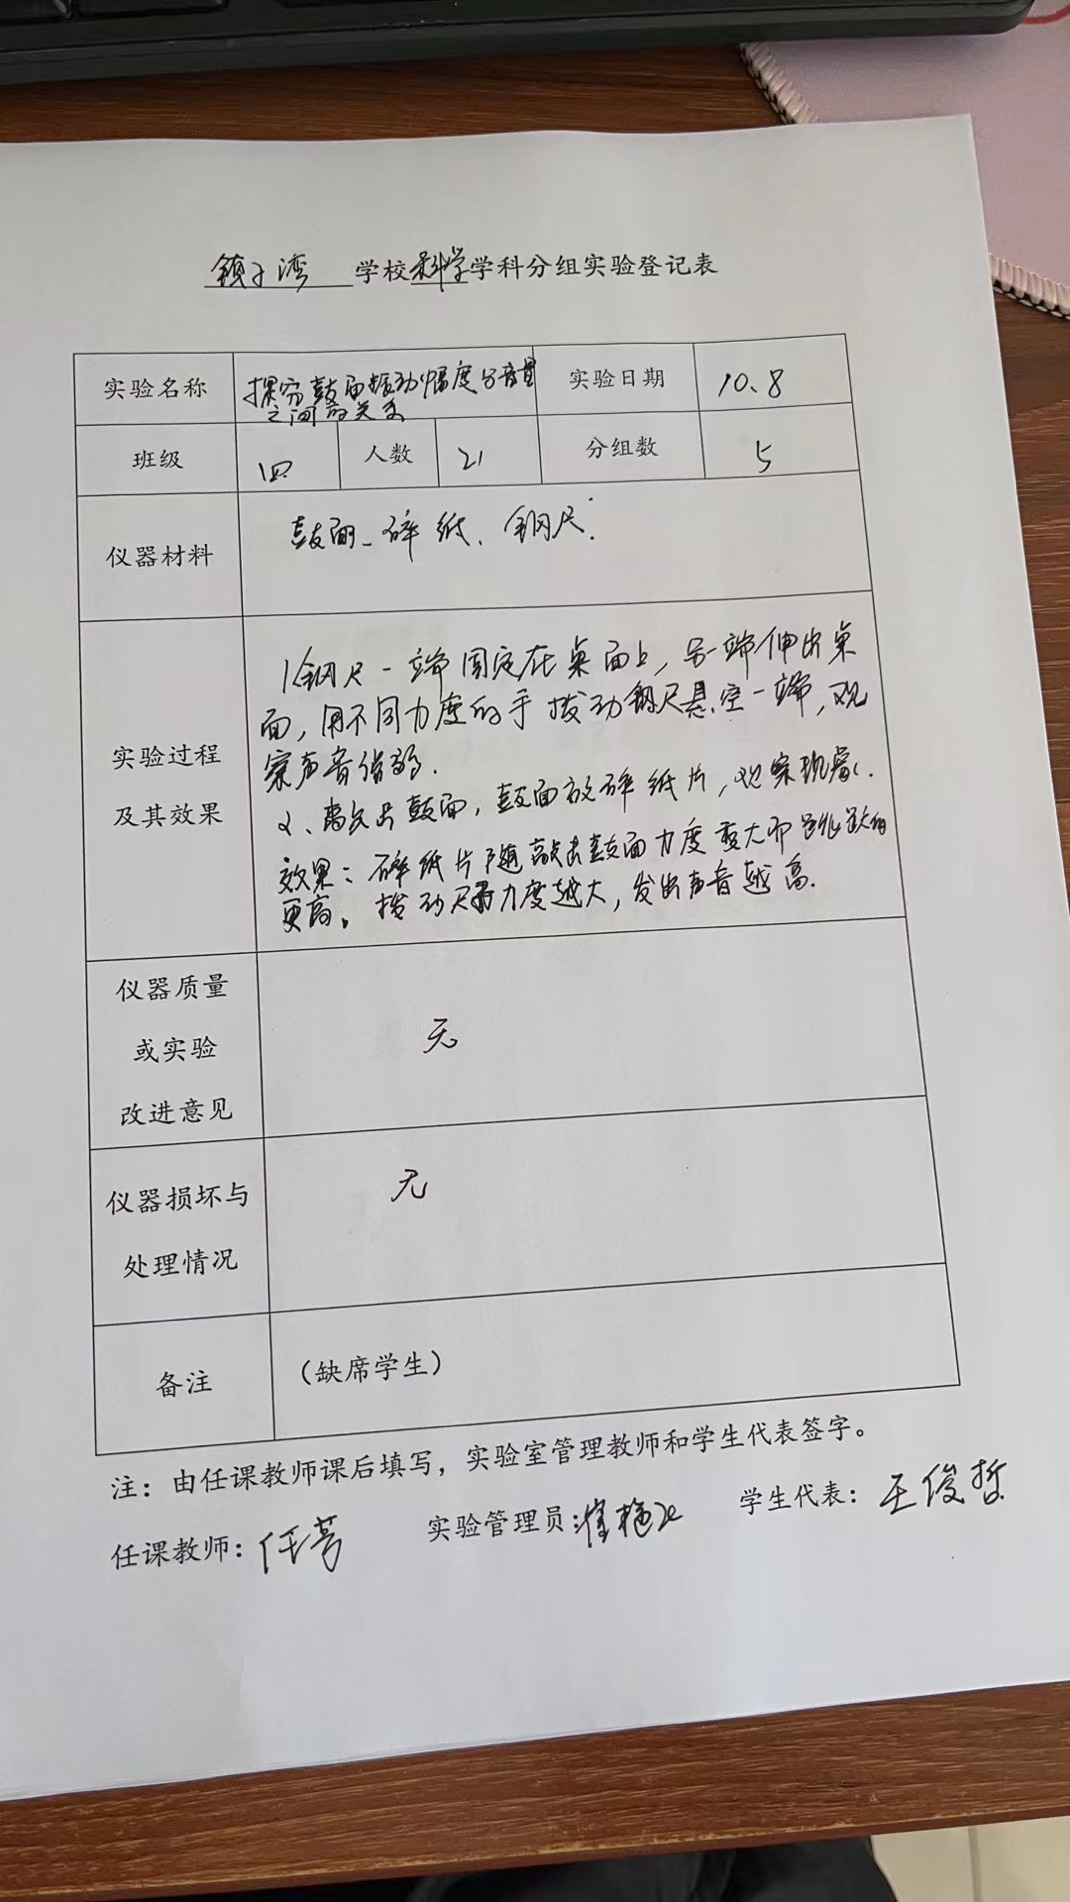 镇子湾 学校科学学科分组实验登记表
实验名称 探究鼓面振动幅度与音量之间的关系 实验日期 10.8
班级 四 人数 21 分组数 5
仪器材料 鼓面、碎纸、钢尺.
实验过程
及其效果
1钢尺一端固定在桌面上,另一端伸出桌
面,用不同力度的手拨动钢尺悬空一端,观
察声音强弱.
2、敲击鼓面,鼓面放碎纸片,观察现象.
效果:碎纸片随敲击鼓面力度变大而跳跃的
更高。拨动尺子力度越大,发出声音越高.
仪器质量
或实验
改进意见
无
仪器损坏与
处理情况
无
备注 (缺席学生)
注:由任课教师课后填写,实验室管理教师和学生代表签字。
任课教师:任 实验管理员:崔 学生代表:王俊哲